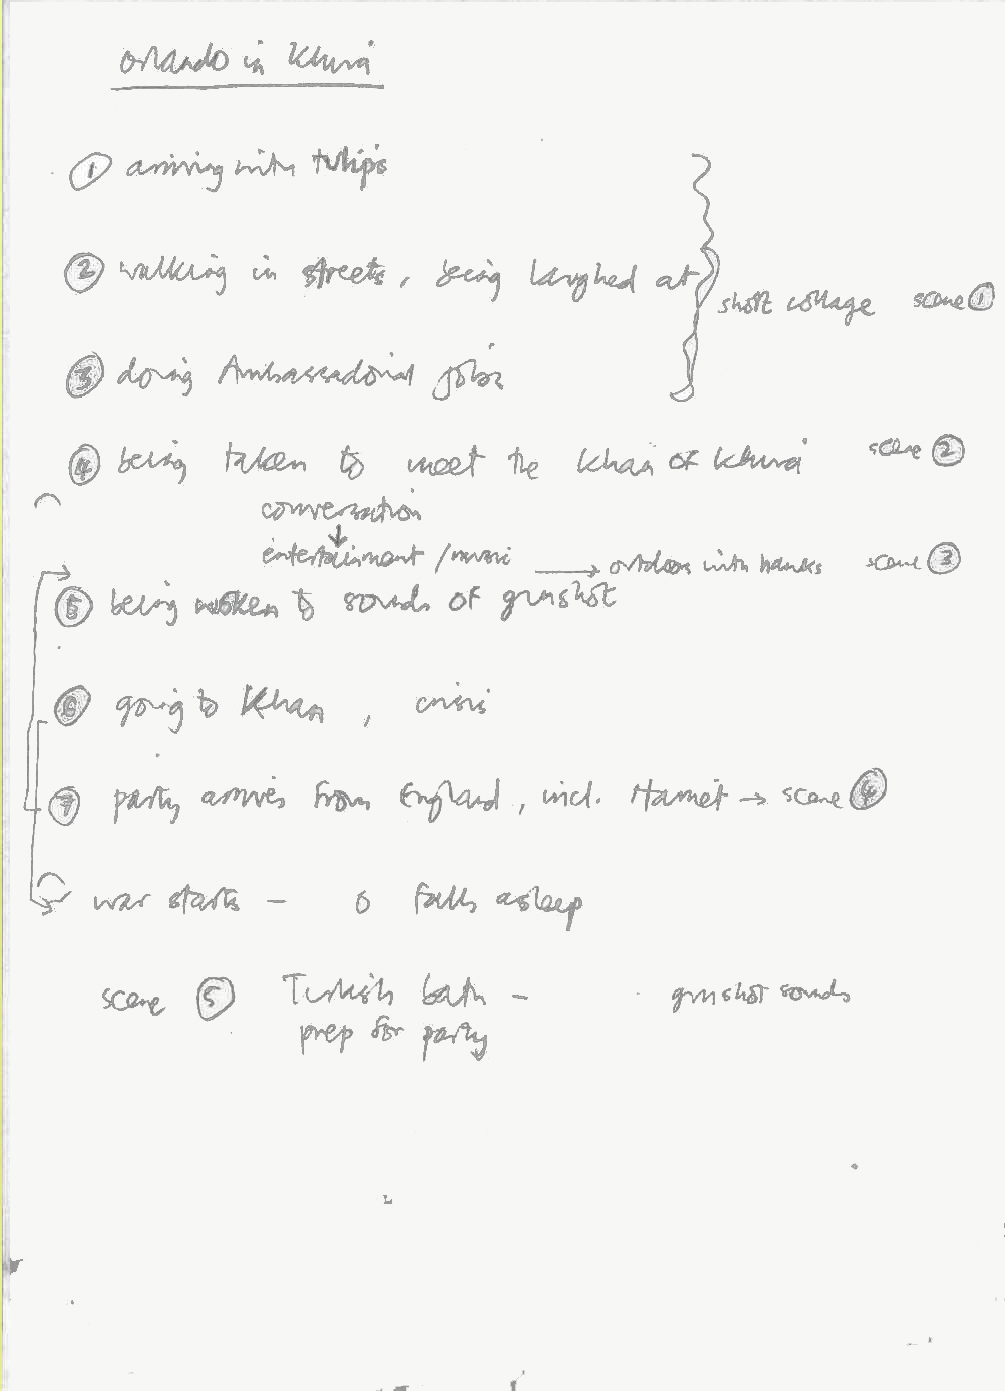 Orlando in Khiva
1 arriving with tulips
2 walking in streets, being laughed at
short collage scene 1
3 doing Ambassadorial jobs
4 being taken to meet the Khan of Khiva scene 2
conversation
↓
entertainment / music → outdoors with hawks scene 3
5 being woken to sounds of gunshot
6 going to Khan, crisis
7 party arrives from England, incl. Harriet → scene 4
war starts - O falls asleep
scene 5 Turkish bath - gunshot sounds
prep for party